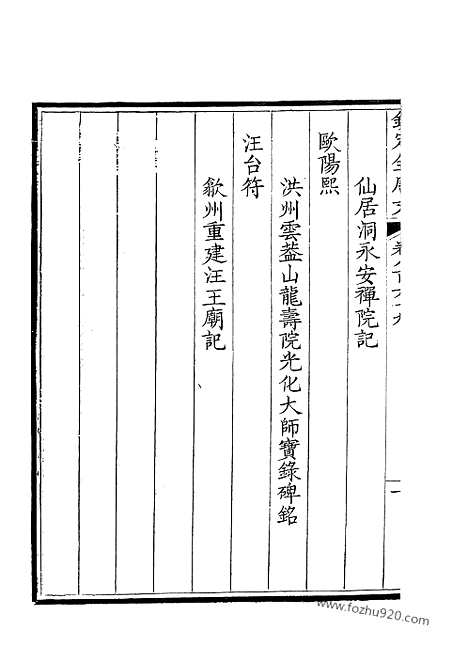 欽定全唐文 卷八百六十九 一
仙居洞永安禪院記
歐陽熙
洪州雲葢山龍壽院光化大師寶錄碑銘
汪台符
歙州重建汪王廟記
www.fozhu920.com